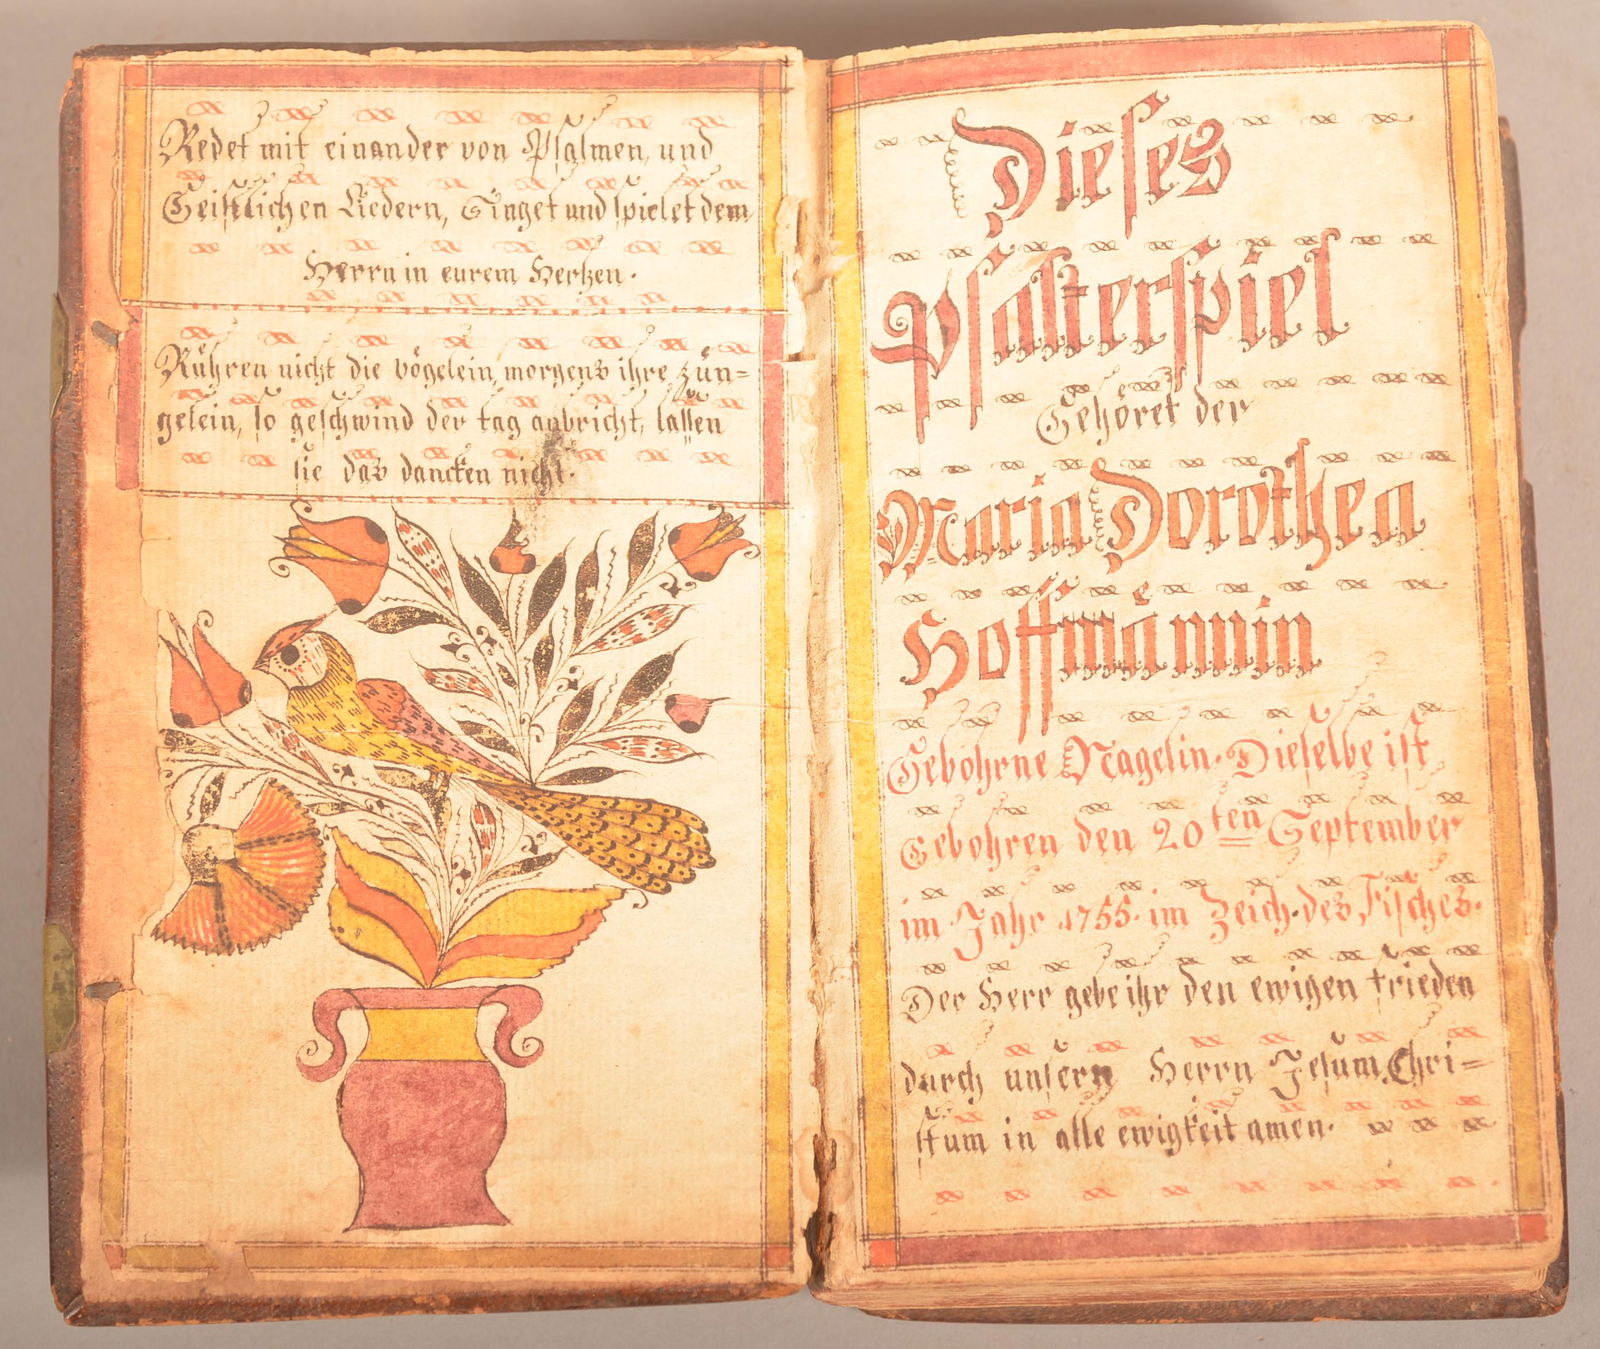 Redet mit einander von Psalmen, und
Geistlichen Liedern, Singet und spielet dem
Herrn in eurem Hertzen.
Rühren nicht die vögelein, morgens ihre zün=
gelein, so geschwind der tag anbricht, lassen
sie das dancken nicht.
Dieses
Psalterspiel
Gehöret der
Maria Dorothea
Hoffmännin
Gebohrne Nagelin. Dieselbe ist
Gebohren den 20ten September
im Jahr 1755. im Zeich. des Fisches.
Der Herr gebe ihr den ewigen frieden
durch unsern Herrn Jesum Chri=
stum in alle ewigkeit amen.